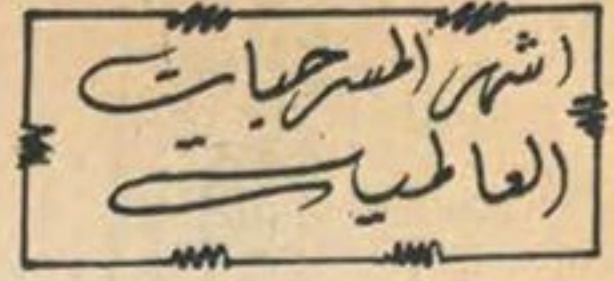 اشهر المسرحيات
العالميات